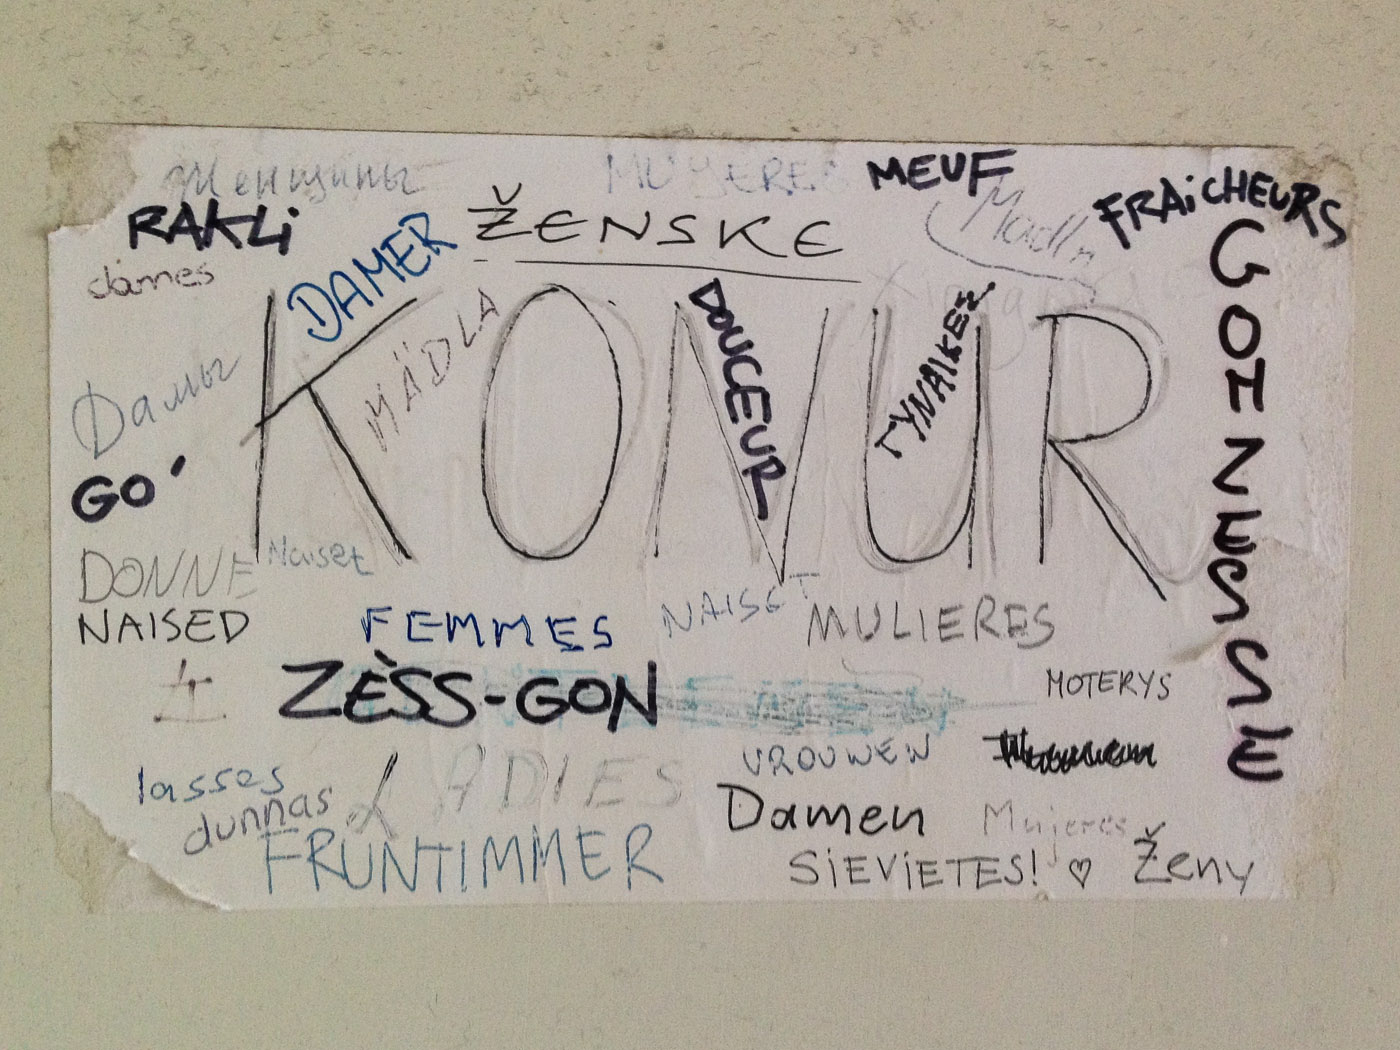 Женщины
MUJERES
MEUF
Madln
FRAiCHEURS
RAKLi
DAMER
ŽENSKE
dames
GONZESSE
KONUR
MÄDLA
DOUCEUR
ΓYNAIKEΣ
Дамы
GO'
DONNE
Naiset
NAISED
FEMMES
NAISET
MULIERES
ZÈSS-GON
MOTERYS
VROUWEN
lasses
LADIES
dunnas
Damen
Mujeres
FRUNTIMMER
SIEVIETES! ♡
Ženy